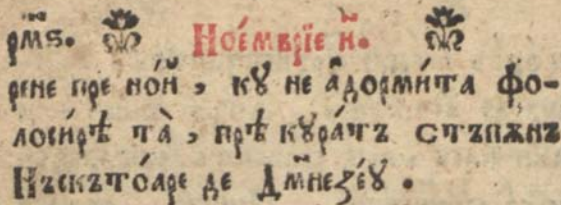 рм҃ѕ. Ное́мврїе н҃.
рене пре но́й , кꙋ не а҆дорми́та фо-
лоси́рѣ та̀ , прѣ кꙋра́тъ стъпѫнъ
Нъскъто́аре де Дм҃незе́ꙋ .